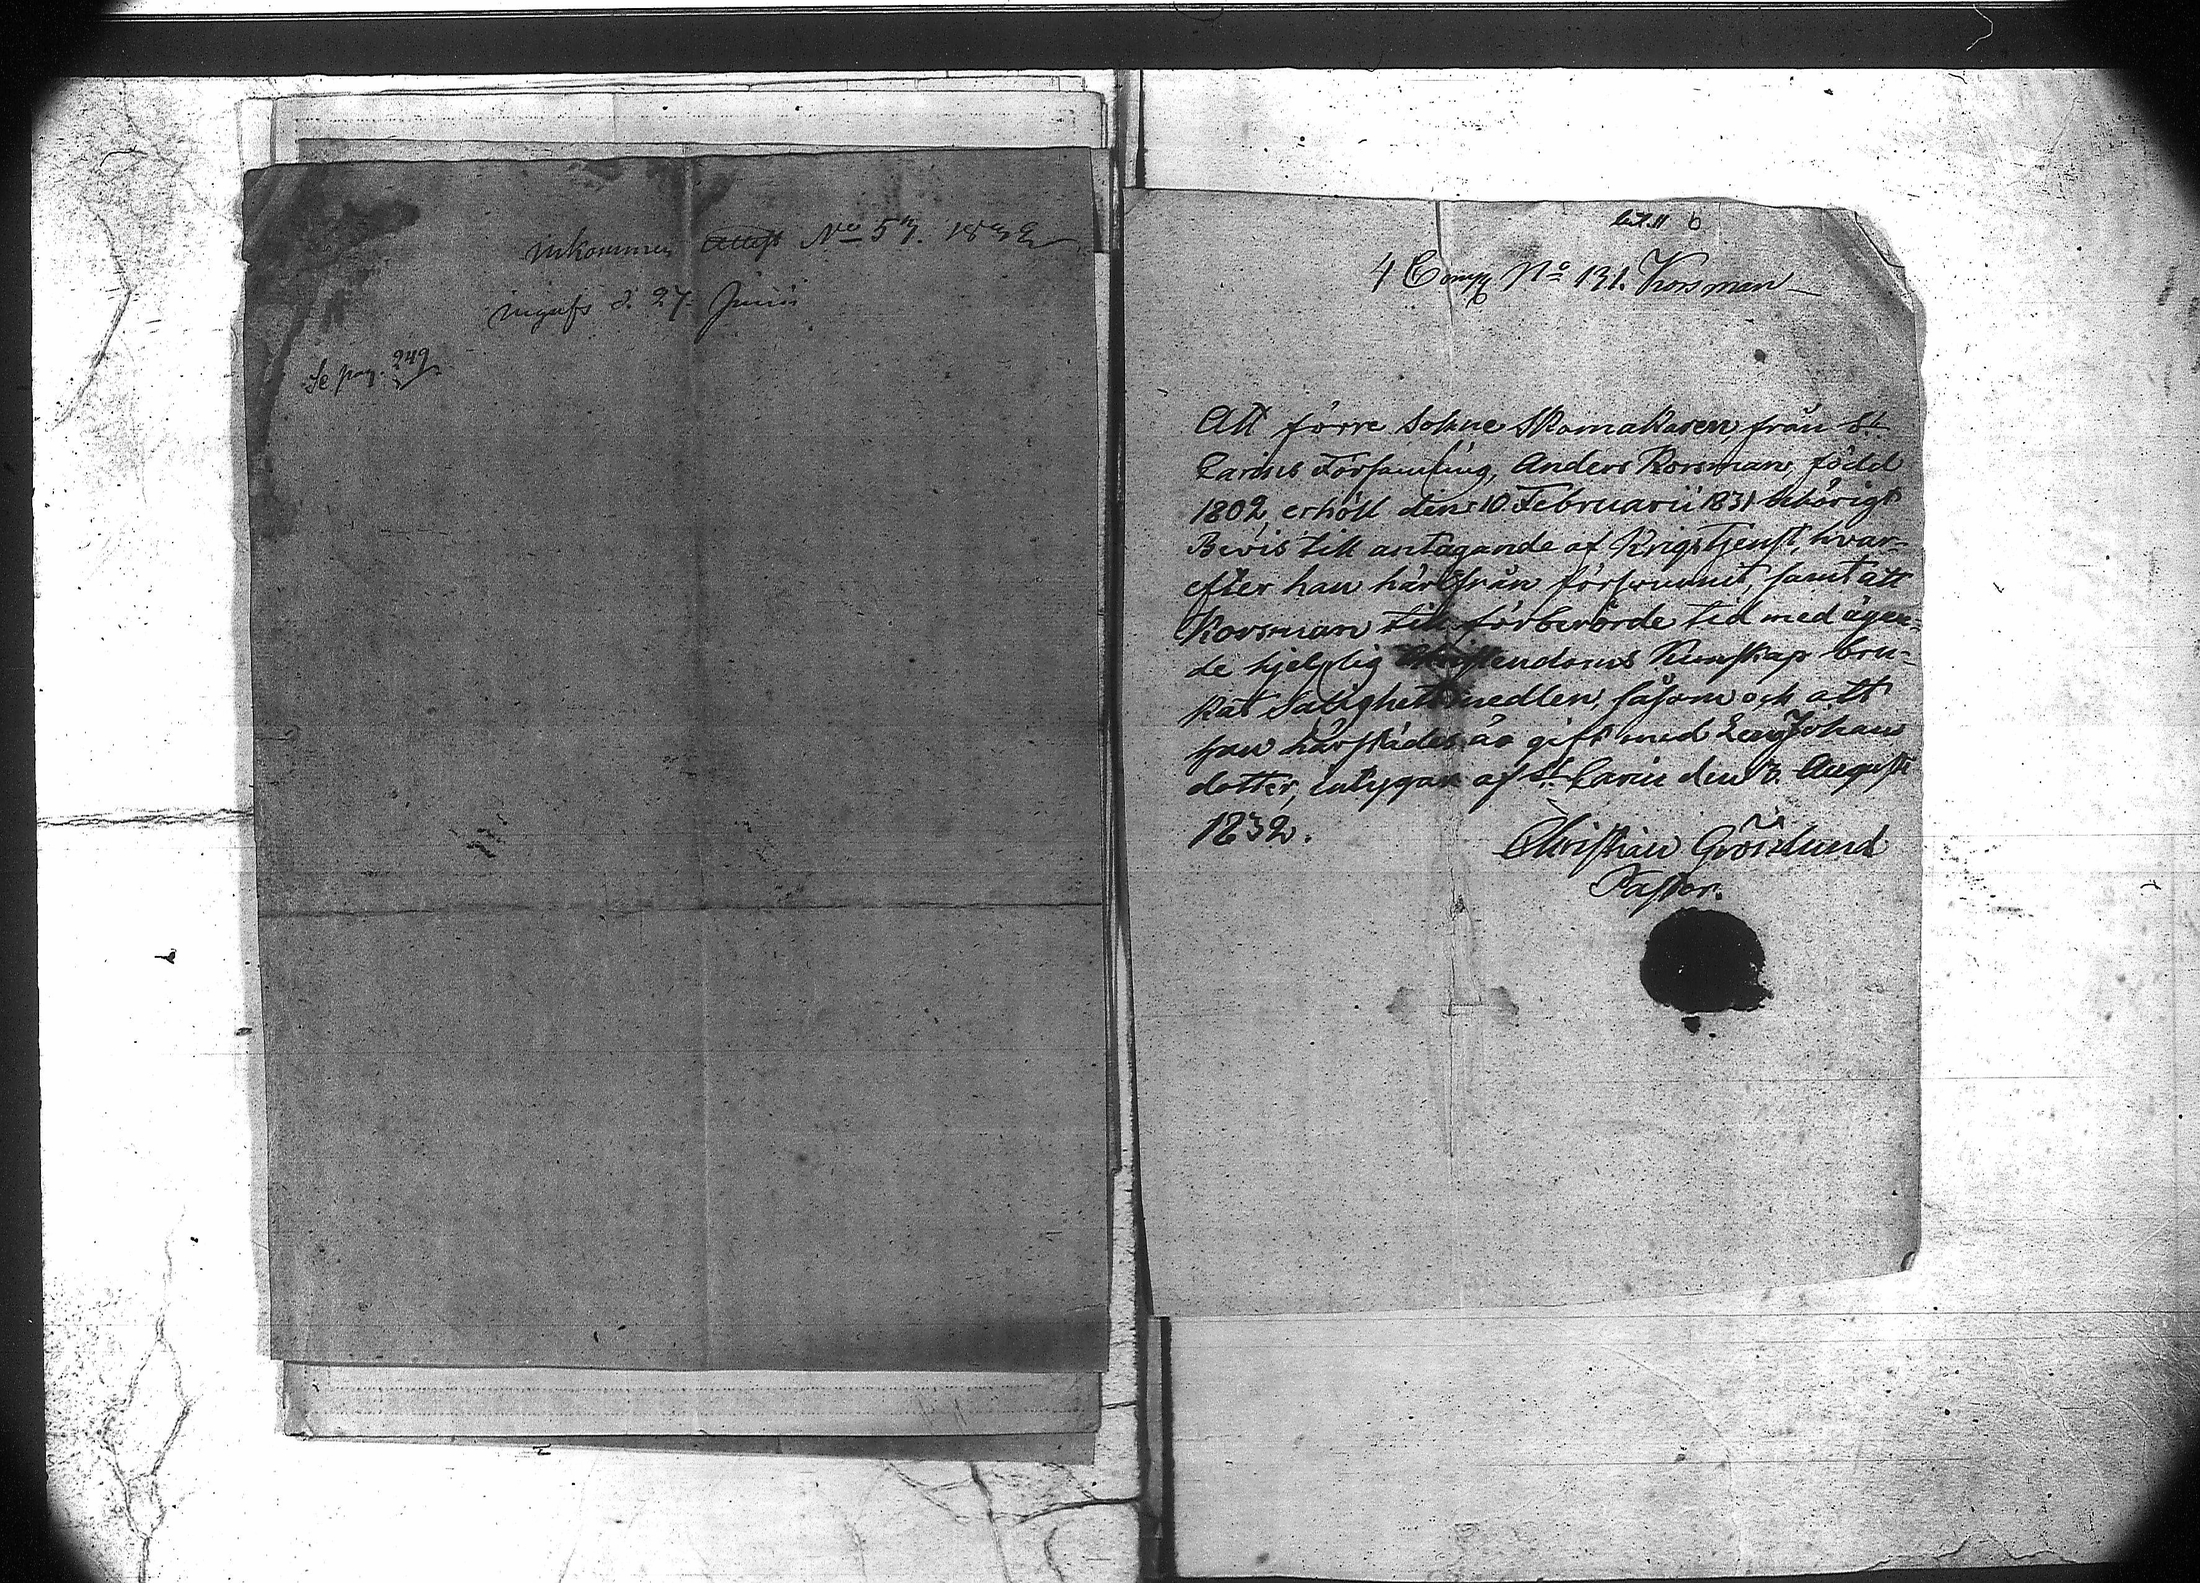 inkommen Attest No 57. 1832
ingafs d. 27 Junii
Se pag. 249
Litt b
4 Comp No 131. Korsman
Att förre Sokne Skomakaren från St
Carins Församling, Anders Korsman, född
1802, erhöll den 10 Februarii 1831 behörigt
Bevis till antagande af Krigstjenst, hvar-
efter han härifrån försvunnit, samt att
Korsman till förberörde tid med ägan-
de hjelplig Christendoms Kunskap bru-
kat Salighetsmedlen, såsom och att
han härstädes är gift med Johans
dotter, intygar af St Carin den 7. Augusti
1832.
Christian Grönlund
Pastor.